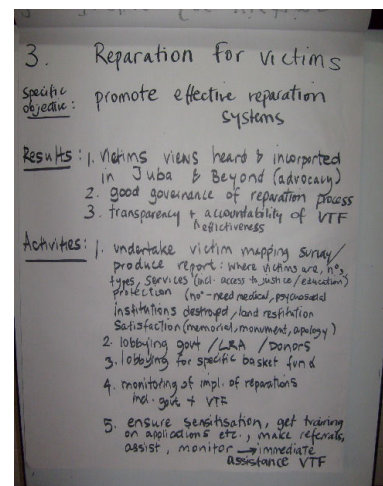 3. Reparation for victims
specific
objective: promote effective reparation
systems
Results: 1. victims views heard & incorported
in Juba & Beyond (advocacy)
2. good governance of reparation process
3. transparency + accountability of VTF
effectiveness
Activities: 1. undertake victim mapping survey/
produce report: where victims are, nos,
types, services (incl. access to justice / education)
protection (nos - need medical, psychosocial
institutions destroyed / land restitution
satisfaction (memorial, monument, apology)
2. lobbying govt / LRA / Donors
3. lobbying for specific basket fund
4. monitoring of impl. of reparations
incl. govt + VTF
5. ensure sensitisation, get training
on applications etc., make referrals,
assist, monitor → immediate
assistance VTF